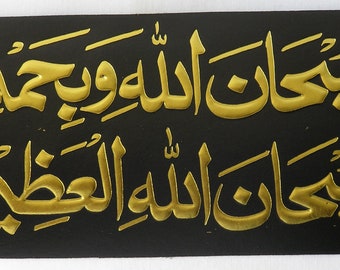 سبحان الله وبحمده
سبحان الله العظيم